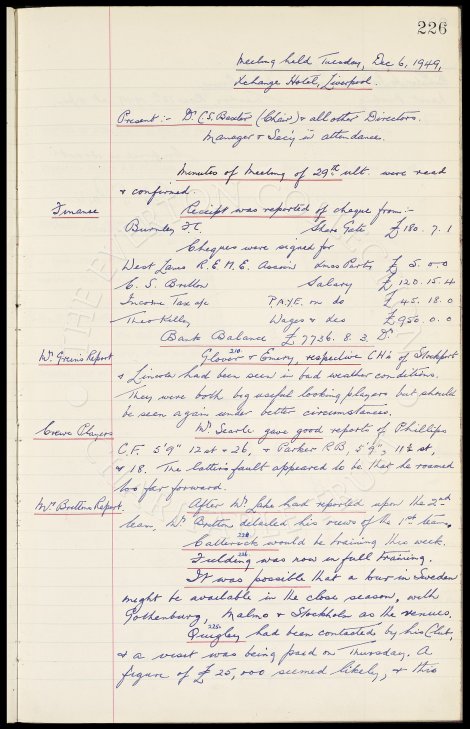 226
Meeting held Tuesday, Dec 6, 1949,
Xchange Hotel, Liverpool.
Present :- Dr. C.S. Baxter (Chair) & all other Directors.
Manager & Sec'y in attendance.
Minutes of Meeting of 29th ult. were read
& confirmed.
Finance Receipt was reported of cheque from :-
Burnley F.C. Share Gate £180. 7. 1
Cheques were signed for
West Lancs R.E.M.E. Assocn Xmas Party £ 5. 0. 0
C. S. Britton Salary £ 120. 15. 4
Income Tax a/c P.A.Y.E. on do £ 45. 18. 0
Theo Kelly Wages & xes £950. 0. 0
Bank Balance £7736. 8. 3. Dr.
Mr. Green's Report Glover & Emery, respective CHs of Stockport
& Lincoln had been seen in bad weather conditions.
They were both big useful looking players but should
be seen again under better circumstances.
Crewe Players Mr. Searle gave good reports of Phillips
C.F. 5'9" 12 st & 26, & Parker R.B, 5'9", 11½ st,
& 18. The latter's fault appeared to be that he roamed
too far forward.
Mr. Britton's Report. After Mr. Lake had reported upon the 2nd
team, Mr. Britton detailed his views of the 1st team.
Catterick would be training this week.
Fielding was now in full training.
It was possible that a tour in Sweden
might be available in the close season, with
Gothenburg, Malmo & Stockholm as the venues.
Quigley had been contacted by his Club,
& a visit was being paid on Thursday. A
figure of £25,000 seemed likely, & this